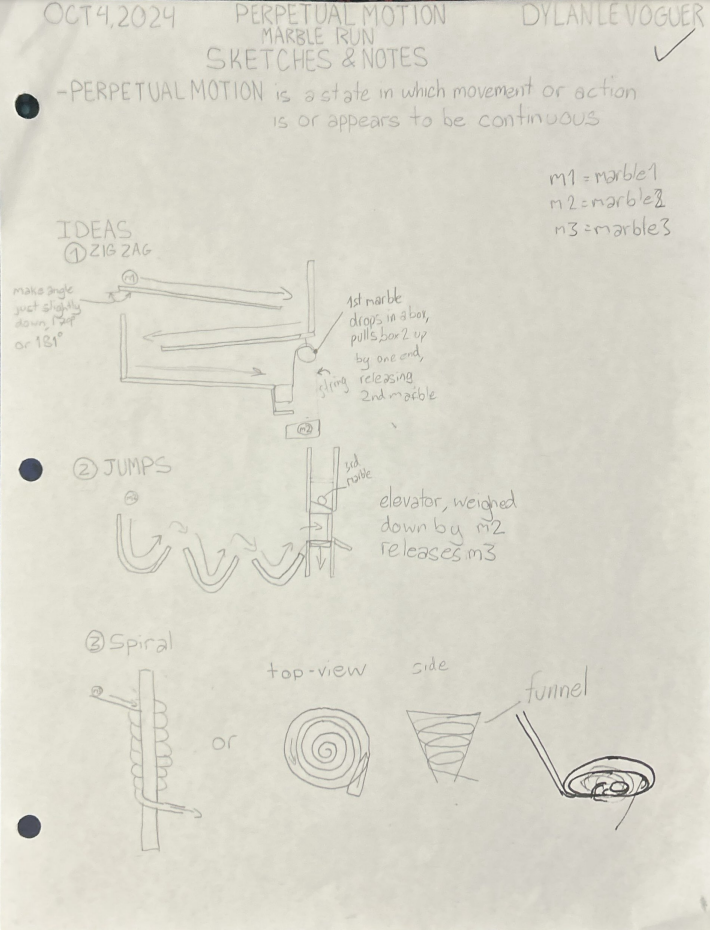 OCT 4, 2024 PERPETUAL MOTION DYLAN LE VOGUER
MARBLE RUN
SKETCHES & NOTES
-PERPETUAL MOTION is a state in which movement or action
is or appears to be continuous
m1 = marble1
m2 = marble2
m3 = marble3
IDEAS
① ZIG ZAG
m1
make angle
just slightly
down,
or 181°
1st marble
drops in a box,
pulls box 2 up
by one end,
releasing
2nd marble
string
m2
② JUMPS
3rd
marble
elevator, weighed
down by m2
releases m3
③ Spiral
top-view
side
funnel
or